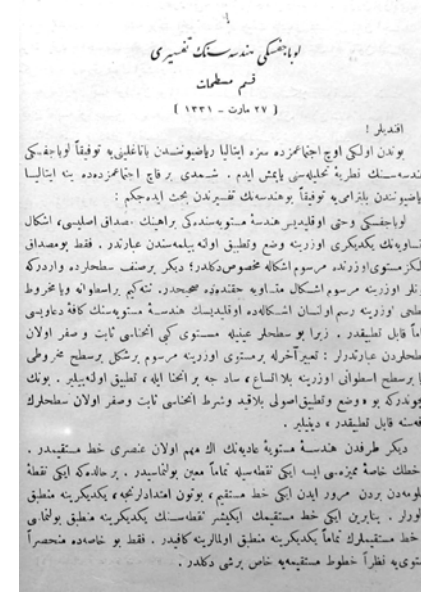 لوباچفسكی هندسه‌سنك تفسیری
قسم مسطحات
( ٢٧ مارت - ١٣٣١ )
افندیلر !
بوندن اولكی اوچ اجتماعمزده سزه ایتالیا ریاضیوننـدن باتاغلینی‌یه توفیقاً لوباچفسكی
ندسه‌سنك نظریهٔ تحلیله‌سنی یاپمش ایدم . شـمدی بر قاچ اجتماعمزده‌ده ینه ایتالیـا
یاضیونندن بلترامی‌یه توفیقاً بوهندسه‌نك تفسیرندن بحث ایده‌جكم :
لوباچفسكی وحتی اوقلیدیس هندسهٔ مستویه‌سنده‌كی براهینك مصداق اصلیسی، اشكال
تساویه‌نك یكدیكری اوزرینه وضع وتطبیق اولنه بیلمه‌سندن عبارتدر . فقط بومصداق
لكز مستوی‌اوزرنده مرسوم اشكاله مخصوص‌دكلدر؛ دیكر برصنف سطحلرده واردركه
ونلر اوزرینه مرسوم اشـكال متساویه حقنده‌ده صحیحدر. نته‌كیم براسطوانه ویا مخروط
طحی اوزرینه رسم اولنـان اشـكاله‌ده اوقلیدیسك هندسـهٔ مستویه‌سنك كافهٔ دعاویسی
اماً قابل تطبیقدر . زیرا بو سطحلر عینیله مستوی كبی انحناسی ثابت و صفر اولان
طحلردن عبارتدرلر : تعبیرآخرله برمستوی اوزرینه مرسوم برشكل برسطح مخروطی
یا برسطح اسطوانی اوزرینه بلا اتساع ، ساد جه بر انحنا ایله ، تطبیق اولنه‌بیلیر . بونك
چوندركه بو « وضع وتطبیق‌اصولی بلاقید وشرط انحناسی ثابت وصفر اولان سطحلرك
فه‌سنه قابل تطبیقدر » دینیلیر .
دیكر طرفدن هندسـهٔ مستویهٔ عادیه‌نك اك مهم اولان عنصری خط مستقیمدر .
خطك خاصهٔ ممیزه‌سی ایسه ایكی نقطه‌سیله تماماً معین بولنماسیدر . بر حالده‌كه ایكی نقطهٔ
لومه‌دن بردن مرور ایدن ایكی خط مستقیم ، بوتون امتدادلرنجه ، یكدیكرینه منطبق
لورلر . بنابرین ایكی خط مستقیمك ایكیشر نقطه‌سـنك یكدیكرینه منطبق بولنماسی
خط مستقیملرك تماماً یكدیكرینه منطبق اولمالرینه كافیدر . فقط بو خاصه‌ده منحصراً
ستوی‌یه نظراً خطوط مستقیمه‌یه خاص برشی دكلدر .